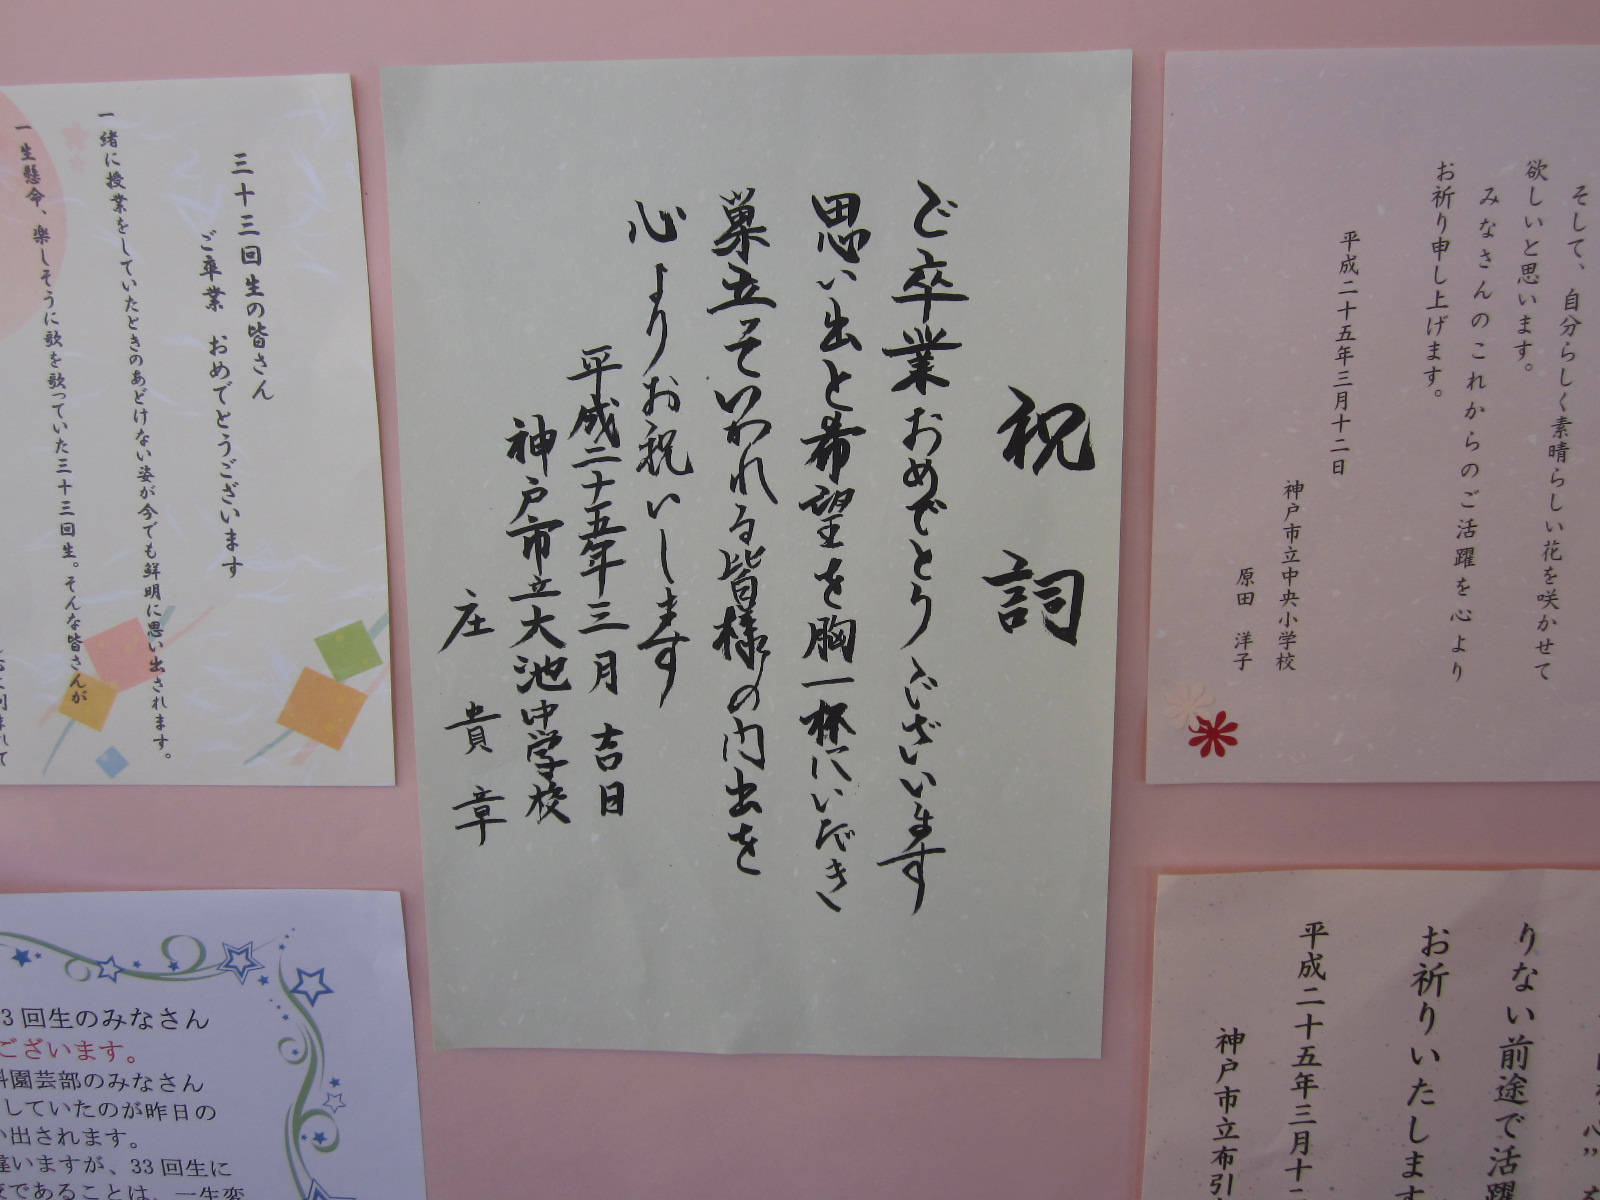 祝詞
ご卒業おめでとうございます
思い出と希望を胸一杯にいだき
巣立そ いわれる皆様の門出を
心よりお祝いします
平成二十五年三月吉日
神戸市立大池中学校
庄 貴章
そして、自分らしく素晴らしい花を咲かせて
欲しいと思います。
みなさんのこれからのご活躍を心より
お祈り申し上げます。
平成二十五年三月十二日
神戸市立中央小学校
原田 洋子
三十三回生の皆さん
ご卒業 おめでとうございます
一緒に授業をしていたときのあどけない姿が今でも鮮明に思い出されます。
一生懸命、楽しそうに歌を歌っていた三十三回生。そんな皆さんが
りない前途で活躍
お祈りいたします
平成二十五年三月十二
神戸市立布引
33回生のみなさん
ございます。
科園芸部のみなさん
していたのが昨日の
い出されます。
違いますが、33回生に
であることは、一生変